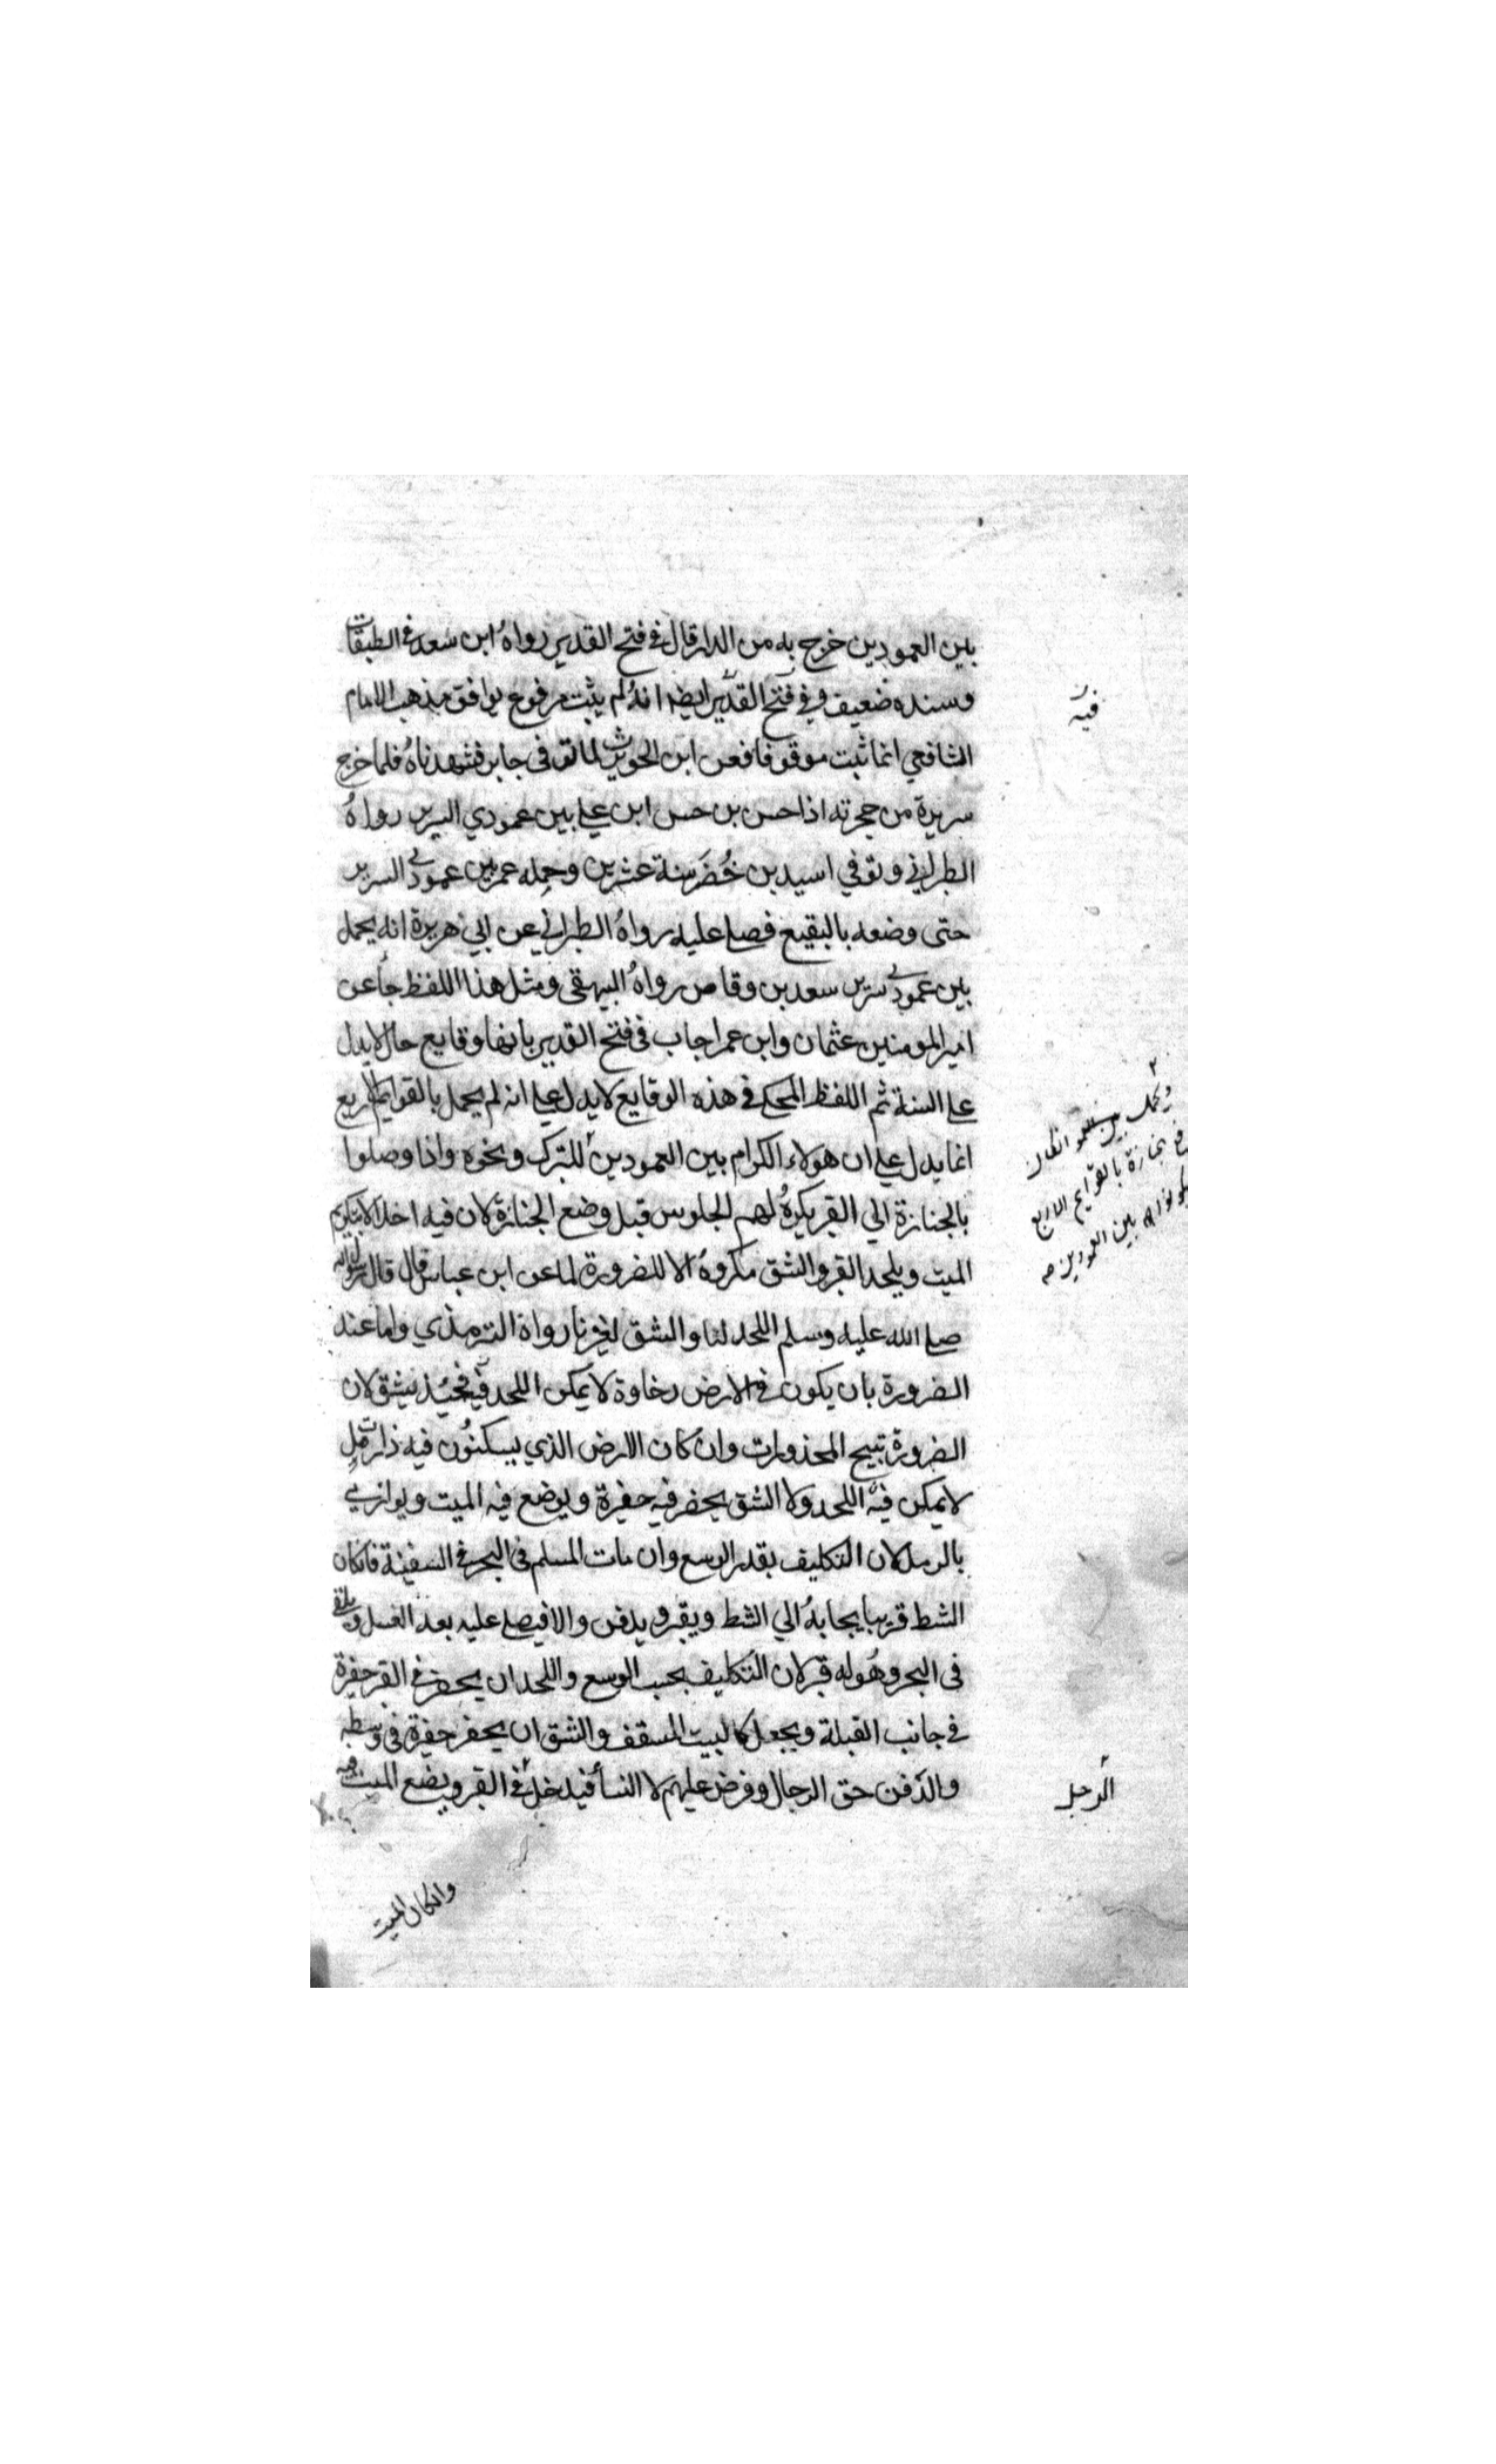 بين العمودين خرج به من الدار قال في فتح القدير رواهُ ابن سعد في الطبقات
وسنده ضعيف وفي فتح القدير ايضا انهُ لم يثبت مرفوع يوافق مذهب الامام
فيه
الشافعي انما ثبت موقوفا فعن ابن الحويرث لما توفى جابر فشهدناهُ فلما خرج
سريرة من حجرته اذا حسن بن حسن ابن علي بين عمودي السرير رواهُ
الطبراني وتوفي اسيد بن خُضَر سنة عشرين وحمله عمر بين عمودي السرير
حتى وضعه بالبقيع فصلى عليه رواهُ الطبراني عن ابي هريرة انه يحمل
بين عمودي سرير سعد بن وقاص رواهُ البيهقي ومثل هذا اللفظ جاء عن
امير المومنين عثمان وابن عمر اجاب في فتح القدير بانها وقايع حال لا يدل
على السنة ثم اللفظ المحكي في هذه الوقايع لا يدل على انه لم يحمل بالقوايم الاربع
انما يدل على ان هولاء الكرام بين العمودين للتبرك ونحوه واذا وصلوا
بالجنازة الي القبر يكرهُ لهم الجلوس قبل وضع الجنازة لان فيه اخلالا بتكريم
الميت ويلحد القبر والشق مكروهُ الا للضرورة لما عن ابن عباس قال قال رسول الله
صلى الله عليه وسلم اللحد لنا والشق لغيرنا رواة الترمذي واما عند
الضرورة بان يكون في الارض رخاوة لا يمكن اللحد فيه فحينئذ يشق لان
الضرورة تبيح المحذورات وان كان الارض الذي يسكنُون فيه ذات رمل
لا يمكن فيه اللحد ولا الشق يحفر فيه حفرة ويوضع فيه الميت ويوارى
بالرمل لان التكليف بقدر الوسع وان مات المسلم في البحر في السفينة فان كان
الشط قريبا يجا بهُ الي الشط ويقبر ويدفن والا فيصلى عليه بعد الغسل ويلقى
في البحر وهُو له قبر لان التكليف بحسب الوسع واللحد ان يحفر في القبر حفرة
في جانب القبلة ويجعل كالبيت المسقف والشق ان يحفر حفرة في وسطه
والدفن حق الرجال وفرض عليهم لا النساء فيدخل في القبر ويضع الميت
الرجل
بين العمودين
بالقوايم الاربع
وان كان الميت